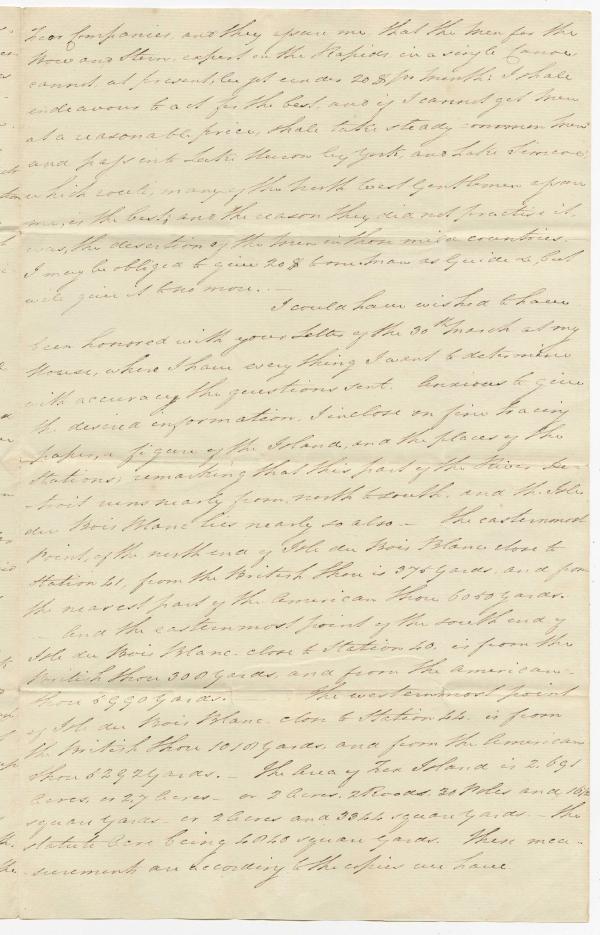 Companies, and they assure me that the Men for the
Bow and Stern, expert in the Rapids, in a single Canoe
cannot at present, be got under 20 $ pr month: I shall
endeavour to act for the best, and if I cannot get Men
at a reasonable price, shall take steady common Men
and pass into Lake Huron by York, and Lake Simcoe
which route, many of the North West Gentlemen assure
me, is the best, and the reason they did not practise it,
was, the desertion of the Men in those mild countries.
I may be obliged to give 20 $ to one Man as Guide &c, but
will give it to no more. —
I could have wished to have
been honored with your Letter of the 30th March at my
House, where I have every thing I want to determine
with accuracy the questions sent. Anxious to give
the desired information, I inclose on fine tracing
paper, a figure of the Island, and the places of the
Stations; remarking that this part of the River De-
-troit runs nearly from north to south, and the Isle
du Bois Blanc lies nearly so also — The easternmost
Point, of the north end of Isle du Bois Blanc close to
Station 41, from the British Shore is 375 Yards, and from
the nearest part of the American Shore 6050 Yards.
— And the easternmost point of the south end of
Isle du Bois Blanc close to Station 40, is from the
British Shore 300 Yards, and from the American
Shore 5990 Yards. The westernmost point
of Isle du Bois Blanc close to Station 44, is from
the British Shore 1010 Yards, and from the American
Shore 5292 Yards. — The Area of Fox Island is 2.691
Acres, or 2.7 Acres — or 2 Acres, 2 Roods, 30 Poles and
square Yards — or 2 Acres and 3344 square Yards — the
statute Acre being 4840 square Yards. These mea-
-surements are according to the copies we have